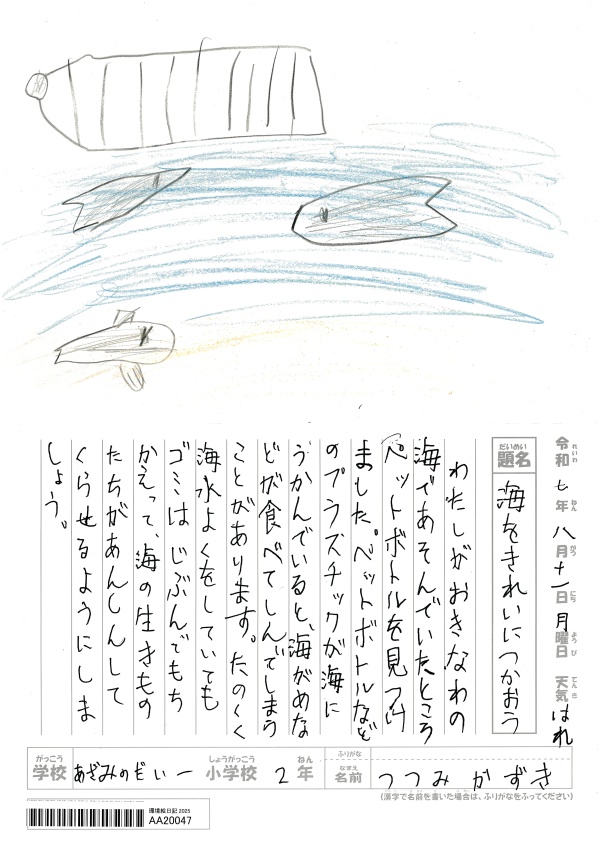 令和七年八月十一日月曜日 天気はれ
れいわ ねん がつ にち ようび てんき
だいめい
題名 海をきれいにつかおう
わたしがおきなわの
海であそんでいたところ
ペットボトルを見つけ
ました。ペットボトルなど
のプラスチックが海に
うかんでいると、海がめな
どが食べてしんでしまう
ことがあります。たのくく
海水よくをしていても
ゴミはじぶんでもち
かえって、海の生きもの
たちがあんしんして
くらせるようにしま
しょう。
がっこう しょうがっこう ねん ふりがな
学校 あざみのだい一 小学校 2年 なまえ 名前 つつみかずき
(漢字で名前を書いた場合は、ふりがなをふってください)
環境絵日記 2025
AA20047